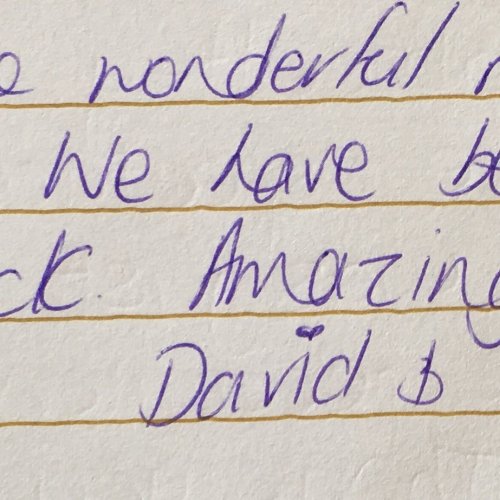 wonderful
We have be
ck. Amazing
David